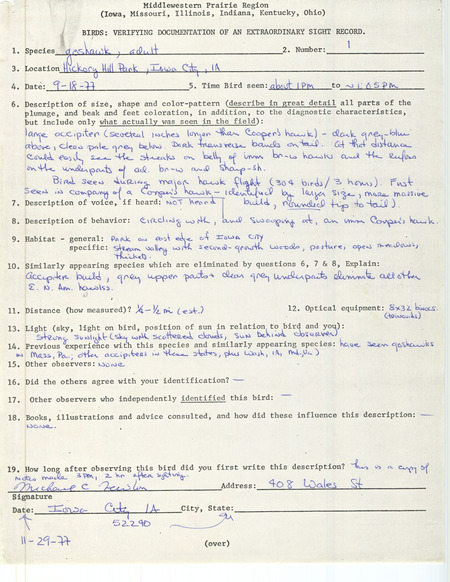 Middlewestern Prairie Region
(Iowa, Missouri, Illinois, Indiana, Kentucky, Ohio)
BIRDS: VERIFYING DOCUMENTATION OF AN EXTRAORDINARY SIGHT RECORD.
1. Species goshawk, adult 2. Number: 1
3. Location Hickory Hill Park, Iowa City, IA
4. Date: 9-18-77 5. Time Bird seen: about 1 PM to ~1:05 PM
6. Description of size, shape and color-pattern (describe in great detail all parts of the
plumage, and beak and feet coloration, in addition, to the diagnostic characteristics,
but include only what actually was seen in the field):
large accipiter (several inches longer than Cooper's hawk) - dark grey-blue
above, clear pale grey below. Dark transverse bands on tail. At that distance
could easily see the streaks on belly of imm br-w hawks and the rufous
on the underparts of ad. br-w and sharp-sh.
Bird seen during major hawk flight (304 birds/3 hours). First
seen in company of a Cooper's hawk - identified by larger size, more massive
7. Description of voice, if heard: not heard build, rounded tip to tail).
8. Description of behavior: Circling with, and swooping at, an imm Cooper's hawk.
9. Habitat - general: Park on east edge of Iowa City
specific: Stream valley with second-growth woods, pasture, open meadows,
thickets.
10. Similarly appearing species which are eliminated by questions 6, 7 & 8, Explain:
Accipiter build, grey upper parts + clear grey underparts eliminate all other
E. N. Am. hawks.
11. Distance (how measured)? ¼-½ mi (est.) 12. Optical equipment: 8x32 binocs.
13. Light (sky, light on bird, position of sun in relation to bird and you):
strong sunlight (sky with scattered clouds, sun behind observer)
14. Previous experience with this species and similarly appearing species: have seen goshawks
in Mass, Pa; other accipiters in these states, plus Wash, IA, Md,
15. Other observers: None
16. Did the others agree with your identification? —
17. Other observers who independently identified this bird: —
18. Books, illustrations and advice consulted, and how did these influence this description: —
None.
19. How long after observing this bird did you first write this description? this is a copy of
notes made 3 PM, 2 hr after sighting.
Michael C Newlon Address: 408 Wales St
Signature
Date: Iowa City IA City, State:
52240
11-29-77
(over)